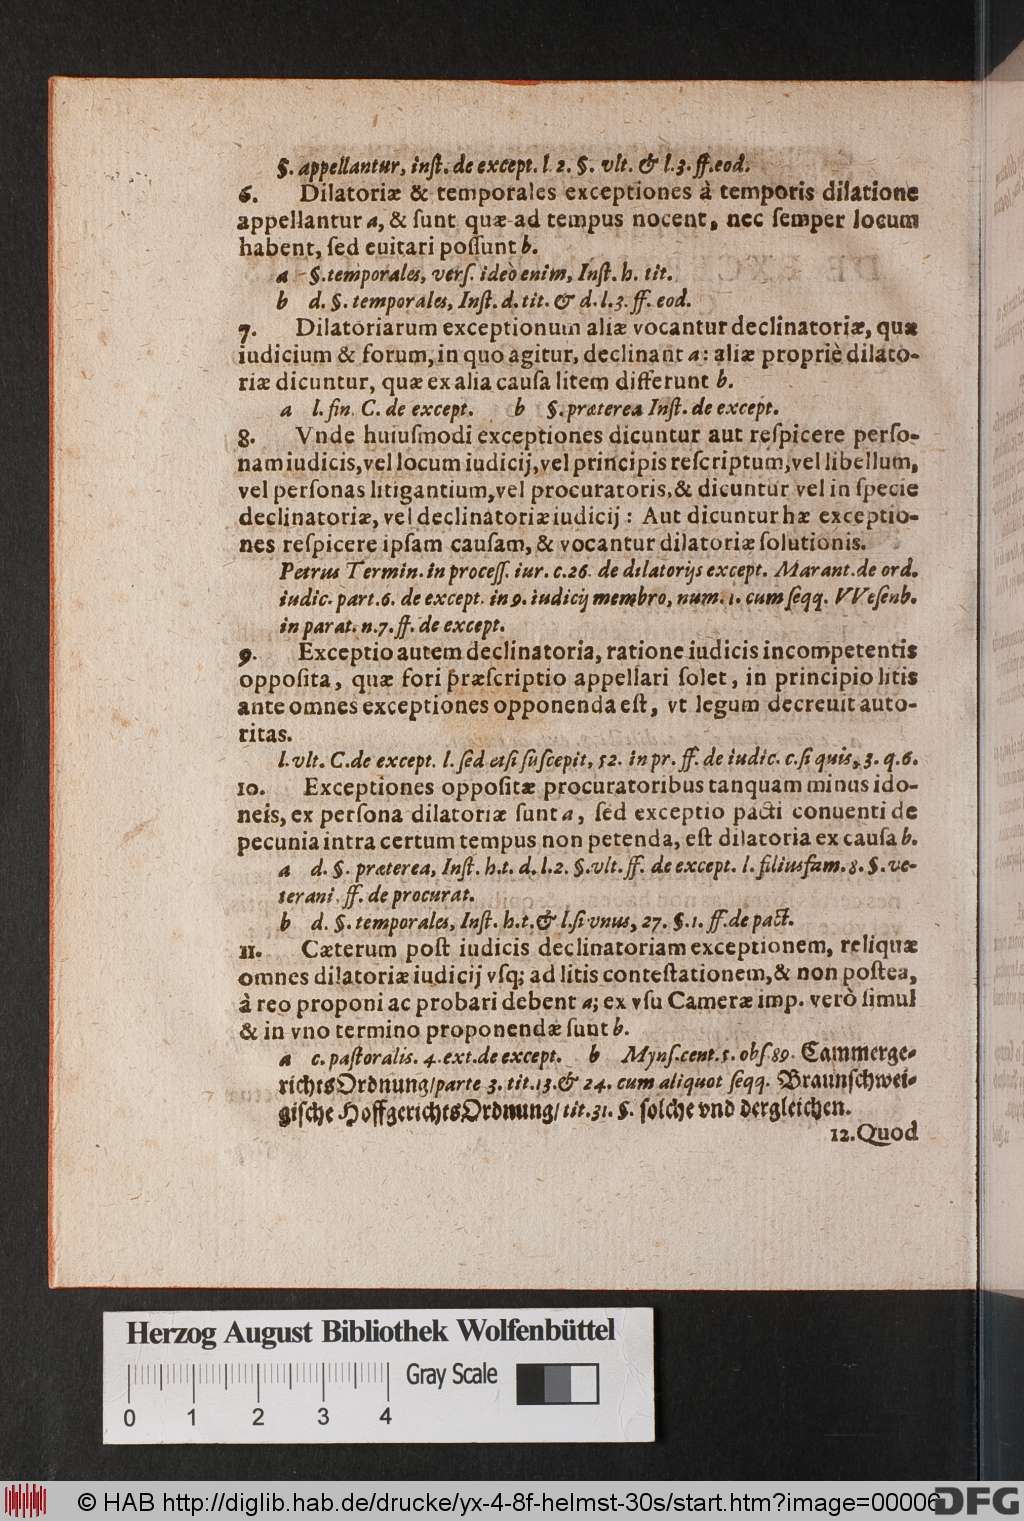 §. appellantur, inſt. de except. l. 2. §. vlt. & l. 3. ff. eod.
6. Dilatoriæ & temporales exceptiones à temporis dilatione
appellantur a, & ſunt quæ ad tempus nocent, nec ſemper locum
habent, ſed euitari poſſunt b.
a §. temporales, verſ. ideò enim, Inſt. h. tit.
b d. §. temporales, Inſt. d. tit. & d. l. 3. ff. eod.
7. Dilatoriarum exceptionum aliæ vocantur declinatoriæ, quæ
iudicium & forum, in quo agitur, declinant a: aliæ propriè dilato-
riæ dicuntur, quæ ex alia cauſa litem differunt b.
a l. fin. C. de except. b §. præterea Inſt. de except.
8. Vnde huiuſmodi exceptiones dicuntur aut reſpicere perſo-
nam iudicis, vel locum iudicij, vel principis reſcriptum, vel libellum,
vel perſonas litigantium, vel procuratoris, & dicuntur vel in ſpecie
declinatoriæ, vel declinatoriæ iudicij: Aut dicuntur hæ exceptio-
nes reſpicere ipſam cauſam, & vocantur dilatoriæ ſolutionis.
Petrus Termin. in proceſſ. iur. c. 26. de dilatorijs except. Marant. de ord.
iudic. part. 6. de except. in 9. iudicij membro, num. 1. cum ſeqq. VVeſenb.
in parat. n. 7. ff. de except.
9. Exceptio autem declinatoria, ratione iudicis incompetentis
oppoſita, quæ fori præſcriptio appellari ſolet, in principio litis
ante omnes exceptiones opponenda eſt, vt legum decreuit auto-
ritas.
l. vlt. C. de except. l. ſed etſi ſuſcepit, 52. in pr. ff. de iudic. c. ſi quis, 3. q. 6.
10. Exceptiones oppoſitæ procuratoribus tanquam minus ido-
neis, ex perſona dilatoriæ ſunt a, ſed exceptio pacti conuenti de
pecunia intra certum tempus non petenda, eſt dilatoria ex cauſa b.
a d. §. præterea, Inſt. h. t. d. l. 2. §. vlt. ff. de except. l. filiusfam. 8. §. ve-
terani. ff. de procurat.
b d. §. temporales, Inſt. h. t. & l. ſi vnus, 27. §. 1. ff. de pact.
11. Cæterum poſt iudicis declinatoriam exceptionem, reliquæ
omnes dilatoriæ iudicij vſq; ad litis conteſtationem, & non poſtea,
à reo proponi ac probari debent a; ex vſu Cameræ imp. verò ſimul
& in vno termino proponendæ ſunt b.
a c. paſtoralis. 4. ext. de except. b Mynſ. cent. 5. obſ. 89. Cammerge-
richtsOrdnung/ parte 3. tit. 13. & 24. cum aliquot ſeqq. Braunſchwei-
giſche HoffgerichtsOrdnung/ tit. 31. §. ſolche vnd dergleichen.
12. Quod
Herzog August Bibliothek Wolfenbüttel
Gray Scale
0 1 2 3 4
© HAB http://diglib.hab.de/drucke/yx-4-8f-helmst-30s/start.htm?image=00006
DFG